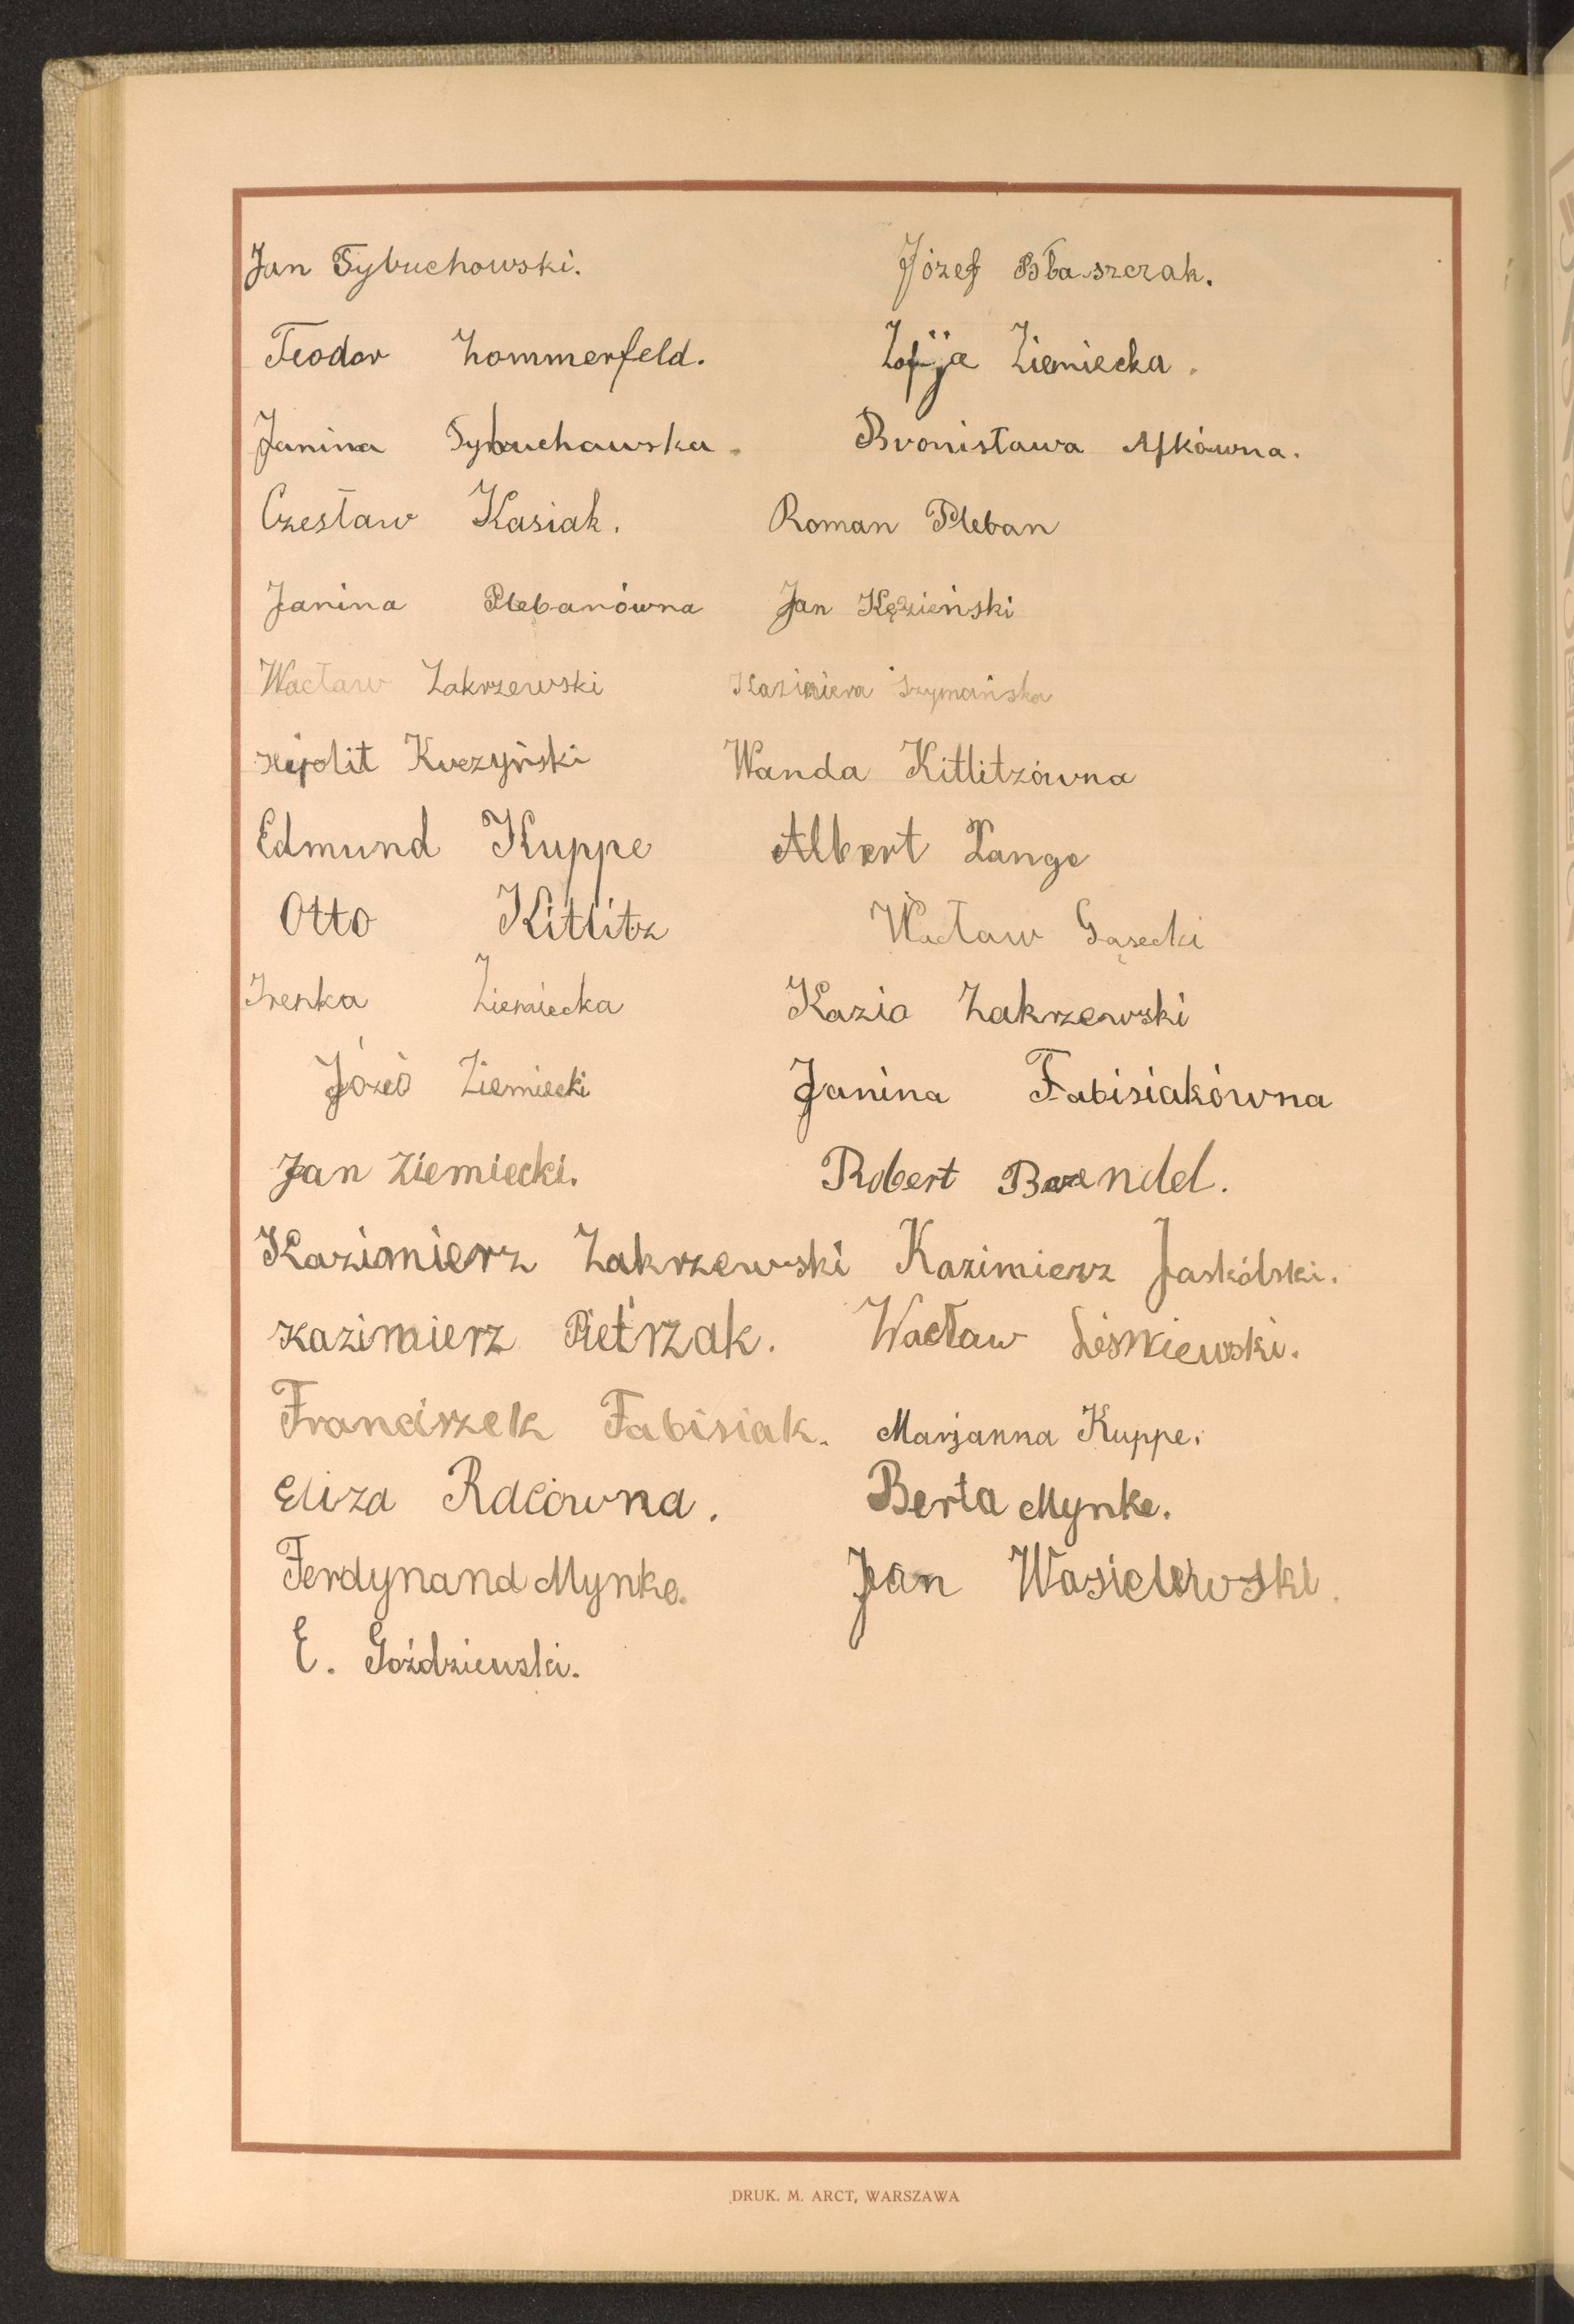 Jan Tybuchowski. Józef Błaszczak.
Teodor Zommerfeld. Zofja Ziemiecka.
Janina Tybuchowska. Bronisława
Czesław Kasiak. Roman Pleban
Janina Plebanówna Jan Kęzieński
Wacław Zakrzewski Kazimiera Szymańska
Hipolit Kuczyński Wanda Kitlitzówna
Edmund Kuppe Albert Lange
Otto Kitlitz Wacław Gąsecki
Irenka Ziemiecka Kazio Zakrzewski
Józio Ziemiecki Janina Fabisiakówna
Jan Ziemiecki. Robert
Kazimierz Zakrzewski Kazimierz Jaskólski.
Kazimierz Pietrzak. Wacław Liśkiewski.
Franciszek Fabisiak. Marjanna Kuppe.
Eliza Berta Mynke.
Ferdynand Mynke. Jan Wasielewski.
E. Goździewski.
DRUK. M. ARCT, WARSZAWA